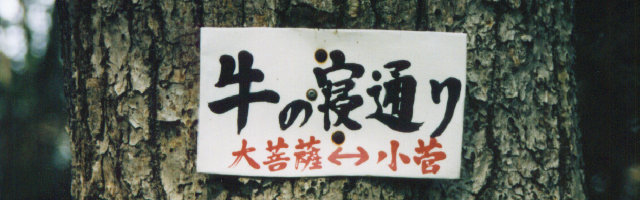 牛の寝通り
大菩薩↔小菅